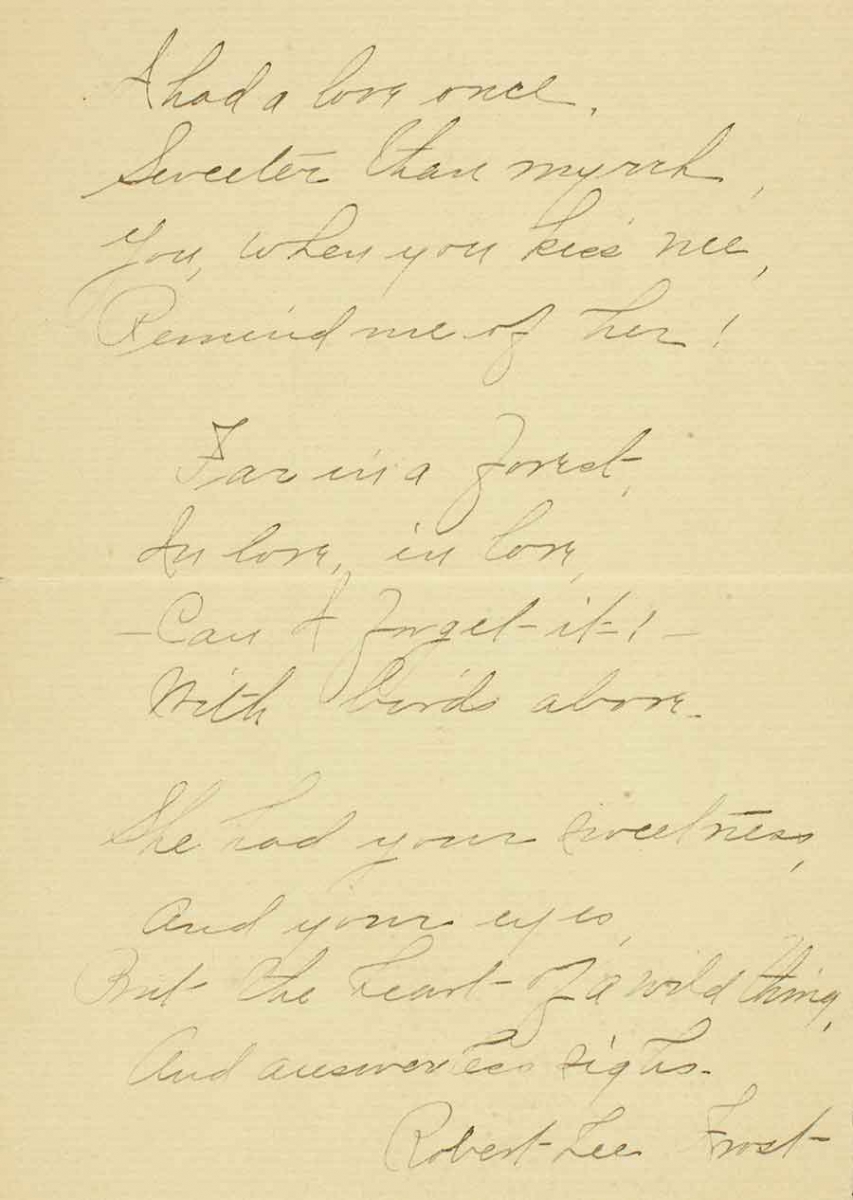 I had a love once,
Sweeter than myrrh,
You, when you kiss me,
Remind me of her!
Far in a forest,
In love, in love,
—Can I forget it!—
With birds above.
She had your sweetness,
And your eyes,
But the heart of a wild thing,
And answerless sighs.
Robert Lee Frost